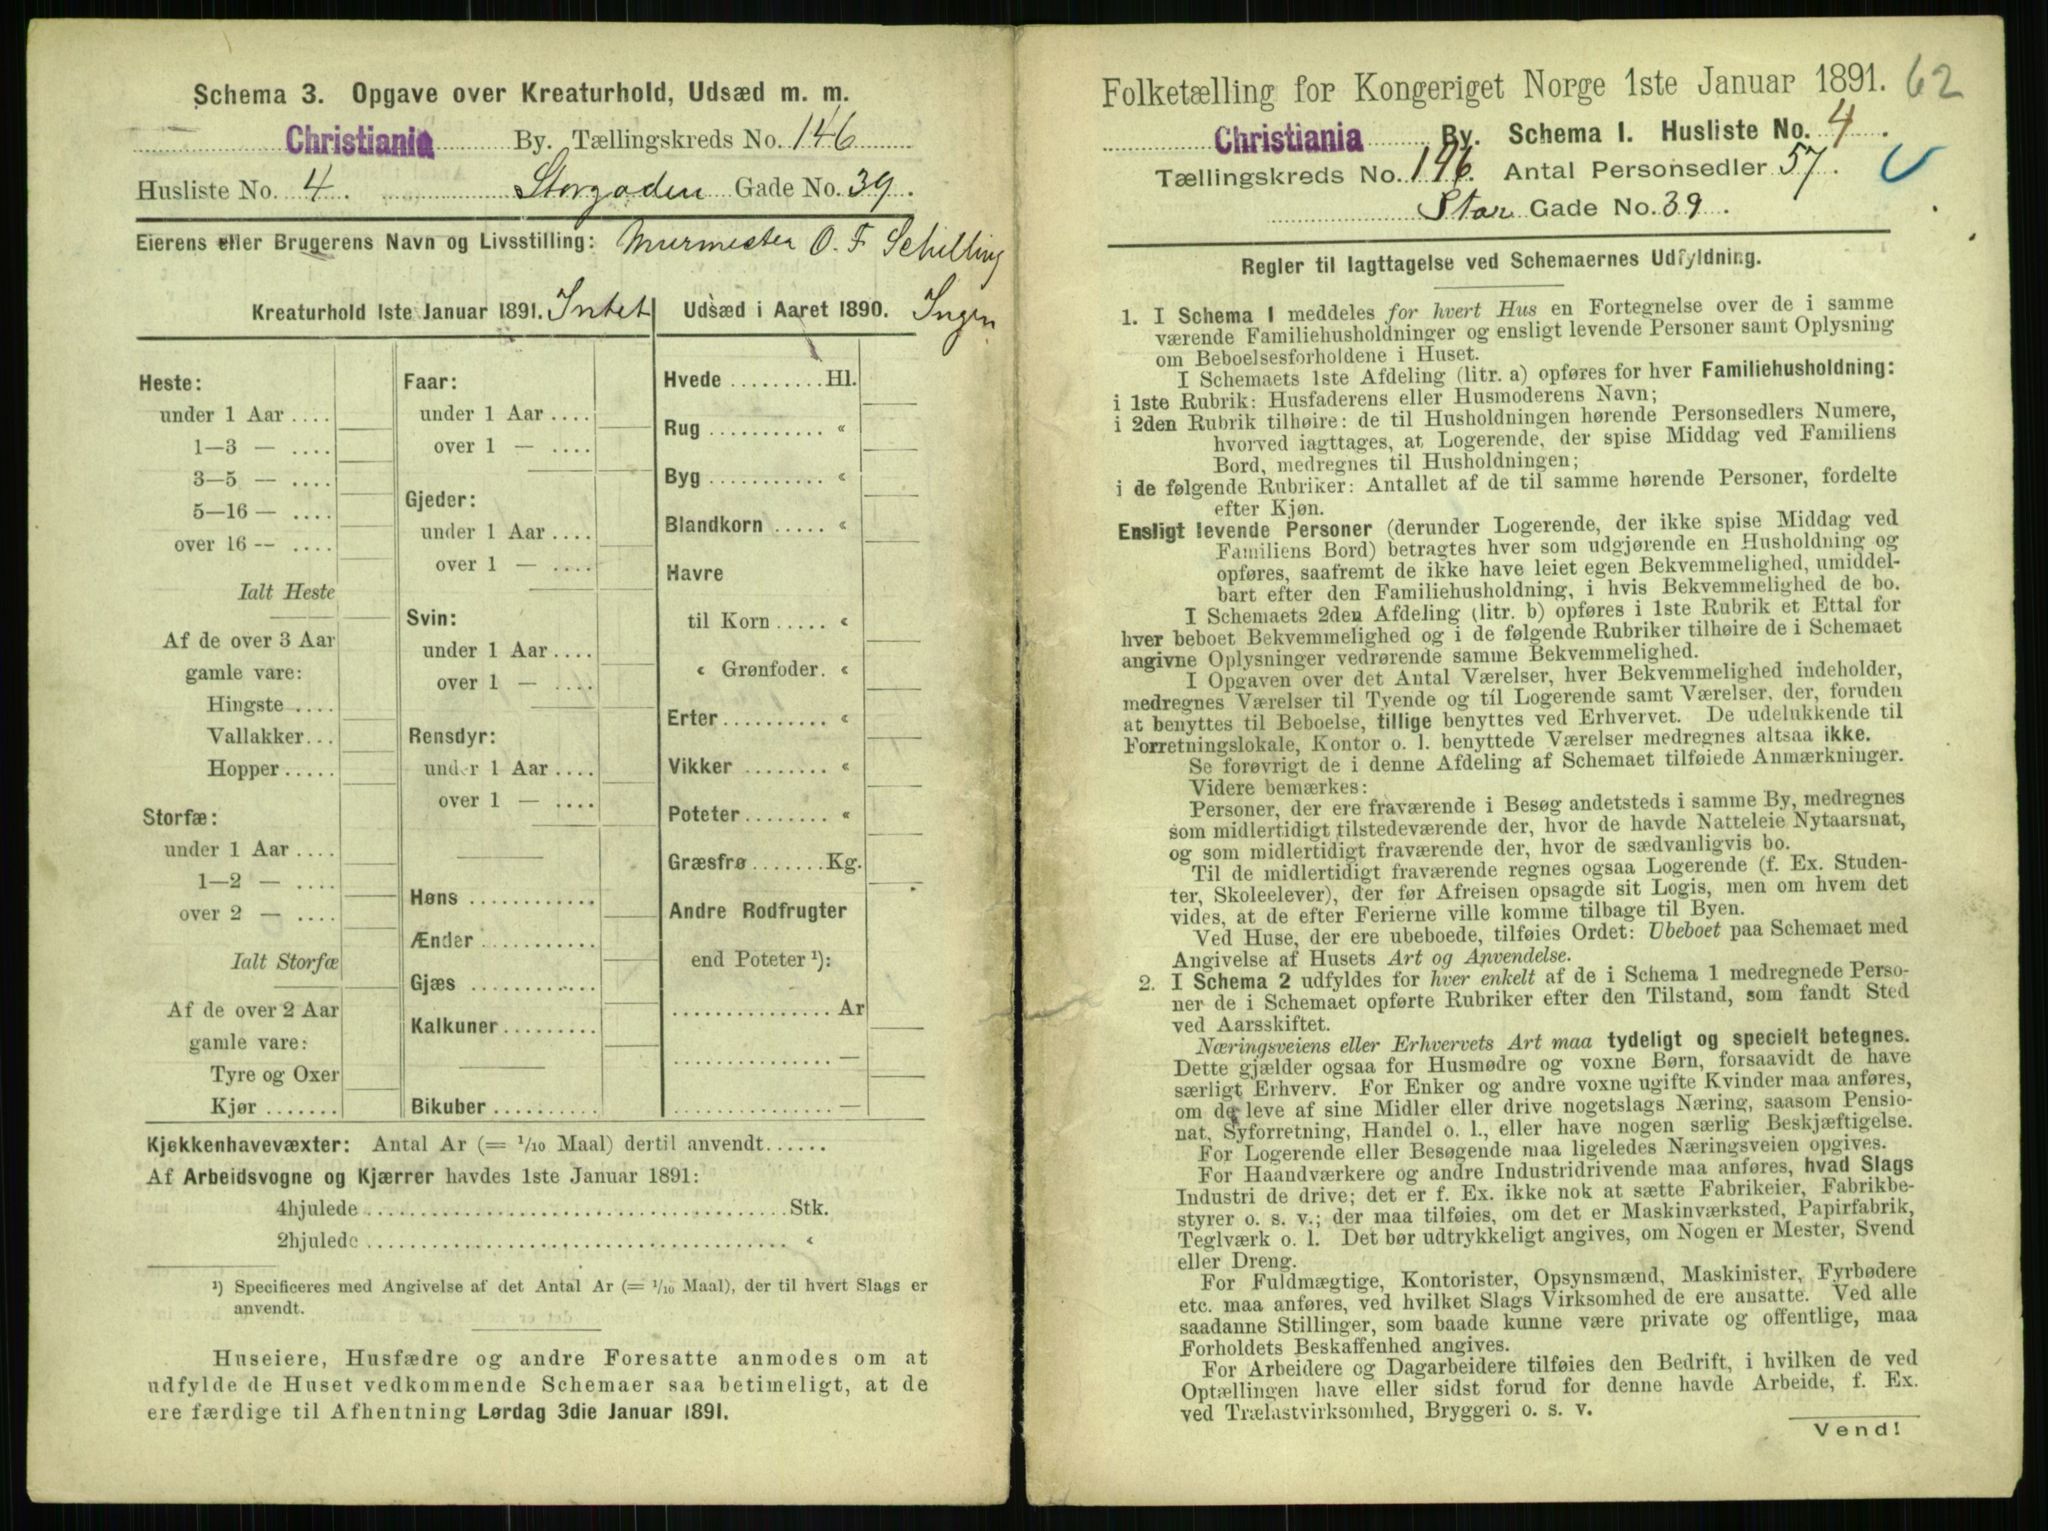 Schema 3. Opgave over Kreaturhold, Udsæd m. m.
Christiania By. Tællingskreds No. 146
Husliste No. 4. Storgaden Gade No. 39.
Eierens eller Brugerens Navn og Livsstilling: Murmester O. F. Schilling
Kreaturhold 1ste Januar 1891. Intet
Heste:
under 1 Aar ....
1—3 — ....
3—5 — ....
5—16 — ....
over 16 -- ....
Ialt Heste
Af de over 3 Aar
gamle vare:
Hingste ....
Vallakker...
Hopper.....
Storfæ:
under 1 Aar ....
1—2 — ....
over 2 — ....
Ialt Storfæ
Af de over 2 Aar
gamle vare:
Tyre og Oxer
Kjør .......
Faar:
under 1 Aar ....
over 1 — ....
Gjeder:
under 1 Aar ....
over 1 — ....
Svin:
under 1 Aar ....
over 1 — ....
Rensdyr:
under 1 Aar ....
over 1 — ....
Høns ............
Ænder ...........
Gjæs ............
Kalkuner.........
Bikuber ..........
Udsæd i Aaret 1890. Ingen
Hvede .........Hl.
Rug ........... «
Byg ........... «
Blandkorn ..... «
Havre
til Korn ..... «
« Grønfoder. «
Erter.......... «
Vikker ........ «
Poteter........ «
Græsfrø .......Kg.
Andre Rodfrugter
end Poteter ¹):
............... Ar
............... —
............... —
Kjøkkenhavevæxter: Antal Ar (= 1/10 Maal) dertil anvendt......
Af Arbeidsvogne og Kjærrer havdes 1ste Januar 1891:
4hjulede ........................................Stk.
2hjulede ........................................ «
¹) Specificeres med Angivelse af det Antal Ar (= 1/10 Maal), der til hvert Slags er
anvendt.
Huseiere, Husfædre og andre Foresatte anmodes om at
udfylde de Huset vedkommende Schemaer saa betimeligt, at de
ere færdige til Afhentning Lørdag 3die Januar 1891.
Folketælling for Kongeriget Norge 1ste Januar 1891. 62
Christiania By. Schema 1. Husliste No. 4.
Tællingskreds No. 146. Antal Personsedler 57.
Stor Gade No. 39.
Regler til Iagttagelse ved Schemaernes Udfyldning.
1. I Schema 1 meddeles for hvert Hus en Fortegnelse over de i samme
værende Familiehusholdninger og ensligt levende Personer samt Oplysning
om Beboelsesforholdene i Huset.
I Schemaets 1ste Afdeling (litr. a) opføres for hver Familiehusholdning:
i 1ste Rubrik: Husfaderens eller Husmoderens Navn;
i 2den Rubrik tilhøire: de til Husholdningen hørende Personsedlers Numere,
hvorved iagttages, at Logerende, der spise Middag ved Familiens
Bord, medregnes til Husholdningen;
i de følgende Rubriker: Antallet af de til samme hørende Personer, fordelte
efter Kjøn.
Ensligt levende Personer (derunder Logerende, der ikke spise Middag ved
Familiens Bord) betragtes hver som udgjørende en Husholdning og
opføres, saafremt de ikke have leiet egen Bekvemmelighed, umiddel-
bart efter den Familiehusholdning, i hvis Bekvemmelighed de bo.
I Schemaets 2den Afdeling (litr. b) opføres i 1ste Rubrik et Ettal for
hver beboet Bekvemmelighed og i de følgende Rubriker tilhøire de i Schemaet
angivne Oplysninger vedrørende samme Bekvemmelighed.
I Opgaven over det Antal Værelser, hver Bekvemmelighed indeholder,
medregnes Værelser til Tyende og til Logerende samt Værelser, der, foruden
at benyttes til Beboelse, tillige benyttes ved Erhvervet. De udelukkende til
Forretningslokale, Kontor o. l. benyttede Værelser medregnes altsaa ikke.
Se forøvrigt de i denne Afdeling af Schemaet tilføiede Anmærkninger.
Videre bemærkes:
Personer, der ere fraværende i Besøg andetsteds i samme By, medregnes
som midlertidigt tilstedeværende der, hvor de havde Natteleie Nytaarsnat,
og som midlertidigt fraværende der, hvor de sædvanligvis bo.
Til de midlertidigt fraværende regnes ogsaa Logerende (f. Ex. Studen-
ter, Skoleelever), der før Afreisen opsagde sit Logis, men om hvem det
vides, at de efter Ferierne ville komme tilbage til Byen.
Ved Huse, der ere ubeboede, tilføies Ordet: Ubeboet paa Schemaet med
Angivelse af Husets Art og Anvendelse.
2. I Schema 2 udfyldes for hver enkelt af de i Schema 1 medregnede Perso-
ner de i Schemaet opførte Rubriker efter den Tilstand, som fandt Sted
ved Aarsskiftet.
Næringsveiens eller Erhvervets Art maa tydeligt og specielt betegnes.
Dette gjælder ogsaa for Husmødre og voxne Børn, forsaavidt de have
særligt Erhverv. For Enker og andre voxne ugifte Kvinder maa anføres,
om de leve af sine Midler eller drive nogetslags Næring, saasom Pensio-
nat, Syforretning, Handel o. l., eller have nogen særlig Beskjæftigelse.
For Logerende eller Besøgende maa ligeledes Næringsveien opgives.
For Haandværkere og andre Industridrivende maa anføres, hvad Slags
Industri de drive; det er f. Ex. ikke nok at sætte Fabrikeier, Fabrikbe-
styrer o. s. v.; der maa tilføies, om det er Maskinværksted, Papirfabrik,
Teglværk o. l. Det bør udtrykkeligt angives, om Nogen er Mester, Svend
eller Dreng.
For Fuldmægtige, Kontorister, Opsynsmænd, Maskinister, Fyrbødere
etc. maa anføres, ved hvilket Slags Virksomhed de ere ansatte. Ved alle
saadanne Stillinger, som baade kunne være private og offentlige, maa
Forholdets Beskaffenhed angives.
For Arbeidere og Dagarbeidere tilføies den Bedrift, i hvilken de ved
Optællingen have eller sidst forud for denne havde Arbeide, f. Ex.
ved Trælastvirksomhed, Bryggeri o. s. v.
Vend!